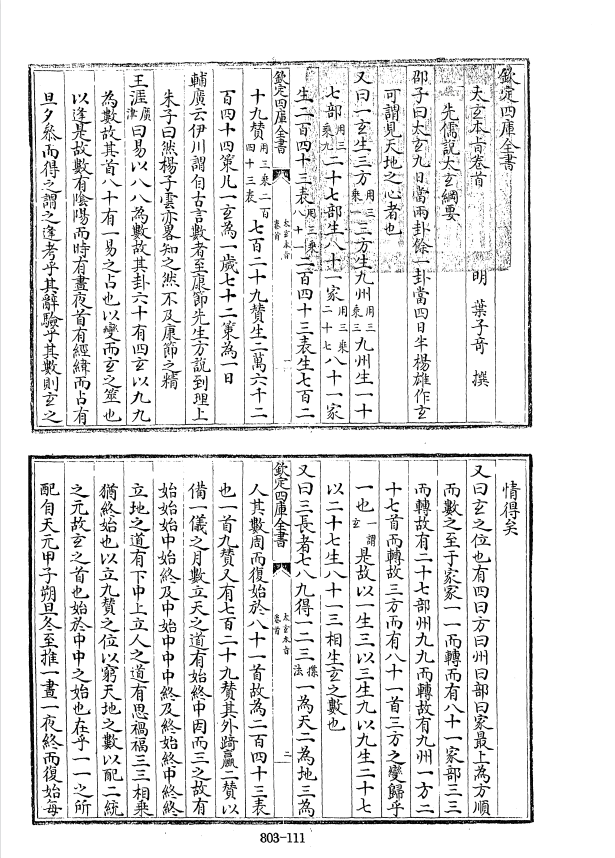 欽定四庫全書
太玄本㫖卷首
明 葉子奇 撰
先儒說太玄綱要
邵子曰太玄九日當兩卦餘一卦當四日半楊雄作玄
可謂見天地之心者也
又曰一玄生三方用三乘一三方生九州用三乘三九州生一十
七部用三乘九二十七部生八十一家用三乘二十七八十一家
生二百四十三表用三乘八十一二百四十三表生七百二
欽定四庫全書
太玄本㫖
卷首
一
十九贊用三乘二百四十三表七百二十九贊生二萬六千二
百四十四策凡一玄為一歲七十二策為一日
輔廣云伊川謂自古言數者至康節先生方說到理上
朱子曰然楊子雲亦畧知之然不及康節之精
王涯廣津曰易以八八為數故其卦六十有四玄以九九
為數故其首八十有一易之占也以變而玄之筮也
以逢是故數有陰陽而時有晝夜首有經緯而占有
旦夕叅而得之謂之逢考乎其辭驗乎其數則玄之
情得矣
又曰玄之位也有四曰方曰州曰部曰家最上為方順
而數之至于家家一一而轉而有八十一家部三三
而轉故有二十七部州九九而轉故有九州一方二
十七首而轉故三方而有八十一首三方之變歸乎
一也一謂玄是故以一生三以三生九以九生二十七
以二十七生八十一三相生玄之數也
又曰三長者七八九得一二三揲法一為天二為地三為
欽定四庫全書
太玄本㫖
卷首
二
人其數周而復始於八十一首故為二百四十三表
也一首九贊又有七百二十九贊其外踦贏二贊以
備一儀之月數立天之道有始終中因而三之故有
始始始中始終及中始中中中終及終始終中終終
立地之道有下中上立人之道有思禍福三三相乘
猶終始也以立九贊之位以窮天地之數以配二統
之元故玄之首也始於中中之始也在乎一一之所
配自天元甲子朔旦冬至推一晝一夜終而復始每
803-111